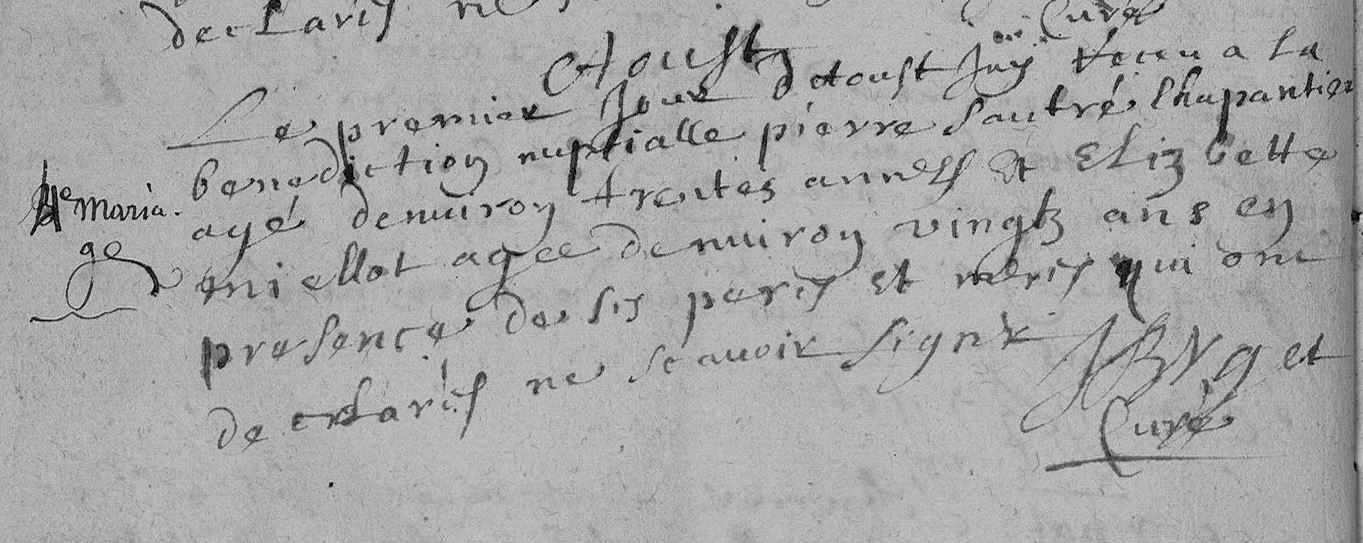 declarés ne
Curé
Aoust
Le premier Jour d'Aoust Jay Receu a la
benediction nuptialle pierre sautré Chapantier
4e maria-
ge
agé denuiron trentes annés et Elizbette
miellot agee denuiron vingtz ans en
presence de ses peres et meres qui ont
declarés ne scauoir signer
Curé